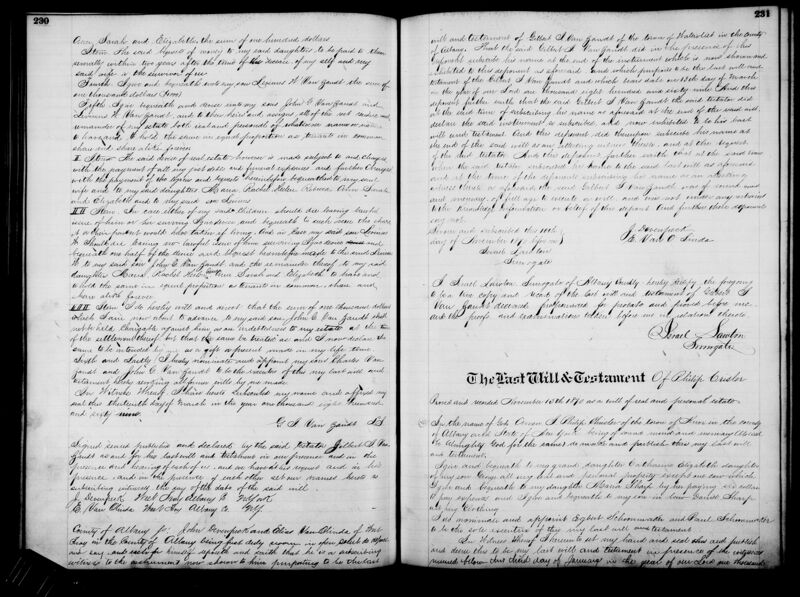 230
Ann, Sarah and Elizabeth the sum of one hundred dollars
Item The said legacies of money to my said daughters, to be paid to them
severally within two years after the time of the decease of my self and my
said wife or the survivor of us
Fourth I give and bequeath unto my son Levinus W Van Zandt the sum of
one thousand dollars
Fifth I give bequeath and devise unto my sons John G Van Zandt and
Levinus W Van Zandt and to their heirs and assigns all of the rest residue and
remainder of my estate both real and personal of whatsoever name or nature
to have and to hold the same in equal proportion as tenants in common
share and share alike forever
Item The said devise of real estate however is made subject to and charged
with the payment of all my just debts and funeral expenses and further charged
with the payment of the legacies and bequests herein before bequeathed to my
wife and to my said daughters Maria Rachel Helen Rebecca Ann Sarah
and Elizabeth and to my said son Levinus
Item In case either of my said children should die leaving lawful
issue of them or her surviving I give devise and bequeath to such issue the share
his or their parent would have taken if living. And in case my said son Levinus
W should die leaving no lawful issue of him surviving I give devise and
bequeath one half of the devise and bequest herein before made to the said Levinus
W to my said son John G Van Zandt and the remainder thereof to my said
daughters Maria Rachel Helen Ann Sarah and Elizabeth to have and
to hold the same in equal proportions as tenants in common share and
share alike forever
Item I do hereby will and direct that the sum of one thousand dollars
which I am now about to advance to my said son John G Van Zandt shall
not be held chargeable against him as an indebtedness to my estate at the time
of the settlement thereof but that the same be treated as and I now declare the
same to be intended by me as a gift or present made in my life time
Sixth and Lastly I hereby nominate and appoint my sons Charles Van
Zandt and John G Van Zandt to be the executors of this my last will and
testament hereby revoking all former wills by me made
In Witness Whereof I have hereto subscribed my name and affixed my
seal this thirteenth day of March in the year one thousand eight hundred
and sixty nine
G I Van Zandt LS
Signed sealed published and declared by the said testator Gilbert I Van
Zandt as and for his last will and testament in our presence and in the
presence and hearing of each of us and we have at his request and in his
presence and in the presence of each other set our names hereto as
subscribing witnesses the day of the date of the said will
J Davenport West Troy Albany Co New York
E Van Olinda West Troy Albany Co N.Y.
County of Albany ss John Davenport and Elias Van Olinda of West
Troy in the County of Albany being first duly sworn in open court do depose
and say and each for himself deposeth and saith that he is a subscribing
witness to the instrument now shown to him purporting to be the last
231
will and testament of Gilbert I Van Zandt of the town of Watervliet in the County
of Albany. That the said Gilbert I Van Zandt did in the presence of this
deponent subscribe his name at the end of the instrument which is now shown and
exhibited to this deponent as aforesaid and which purports to be the last will and
testament of the said Gilbert I Van Zandt which bears date on 13th day of March
in the year of our Lord one thousand eight hundred and sixty nine And this
deponent further saith that the said Gilbert I Van Zandt the said testator did
at the said time of subscribing his name as aforesaid at the end of the said will
declare the said instrument so subscribed and now exhibited to be his last
will and testament And this deponent did thereupon subscribe his name at
the end of the said will as an attesting witness thereto, and at the request
of the said testator And this deponent further saith that at the said time
when the said testator subscribed his name to the said last will as aforesaid
and at the time of the deponent subscribing his name as an attesting
witness thereto as aforesaid the said Gilbert I Van Zandt was of sound mind
and memory of full age to execute a will and was not under any restraint
to the knowledge information or belief of this deponent And further these deponents
say not
Sworn and subscribed this 10th
day of November 1870 before me
Israel Lawton
Surrogate
J Davenport
E Van Olinda
I Israel Lawton Surrogate of Albany County hereby certify the foregoing
to be a true copy and record of the last will and testament of Gilbert I
Van Zandt deceased propounded for probate and proved before me
and the proofs and examinations taken before me in relation thereto
Israel Lawton
Surrogate
The Last Will & Testament Of Philip Crisler
Proved and recorded November 15th 1870 as a will of real and personal estate
In the name of God Amen I, Philip Crisler of the town of Knox in the county
of Albany and State of New York being of sound mind and memory blessed be
Almighty God for the same do make and publish this my last will
and testament
I give and bequeath to my grand daughter Catharine Elizabeth daughter
of my son George all my real and personal property except one cow which
I give and bequeath to my daughter Maria Sharp by her paying six dollars
to pay expenses and I give and bequeath to my son in law Daniel Sharp
all my clothing
I do nominate and appoint Egbert Schoonmaker and Paul Schoonmaker
to be the sole executors of this my last will and testament
In Witness Whereof I hereunto set my hand and seal and publish
and decree this to be my last will and testament in presence of the witnesses
named below this third day of January in the year of our Lord one thousand